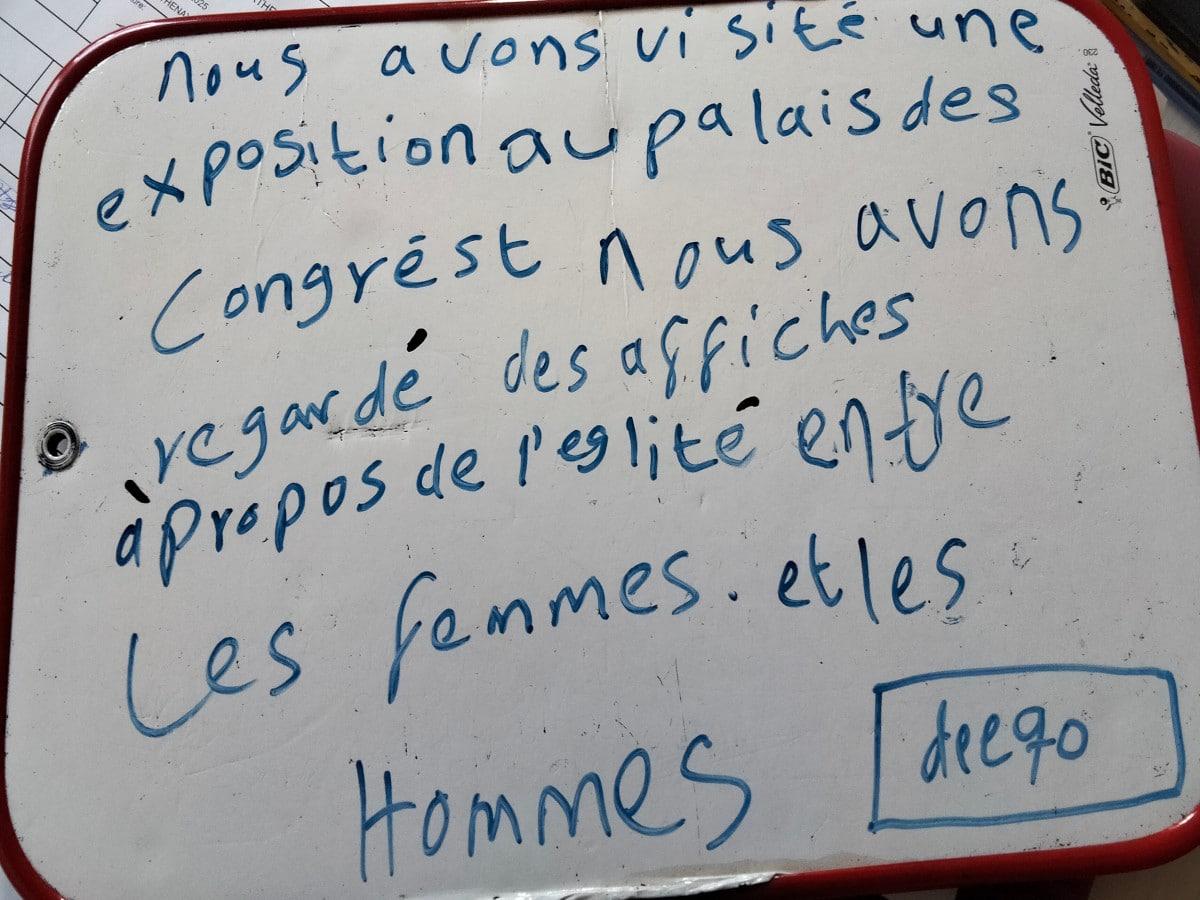 nous avons visité une
exposition au palais des
Congrést nous avons
regardé des affiches
à propos de l'eglité entre
Les femmes. et les
Hommes
deego
BIC Velleda
2025